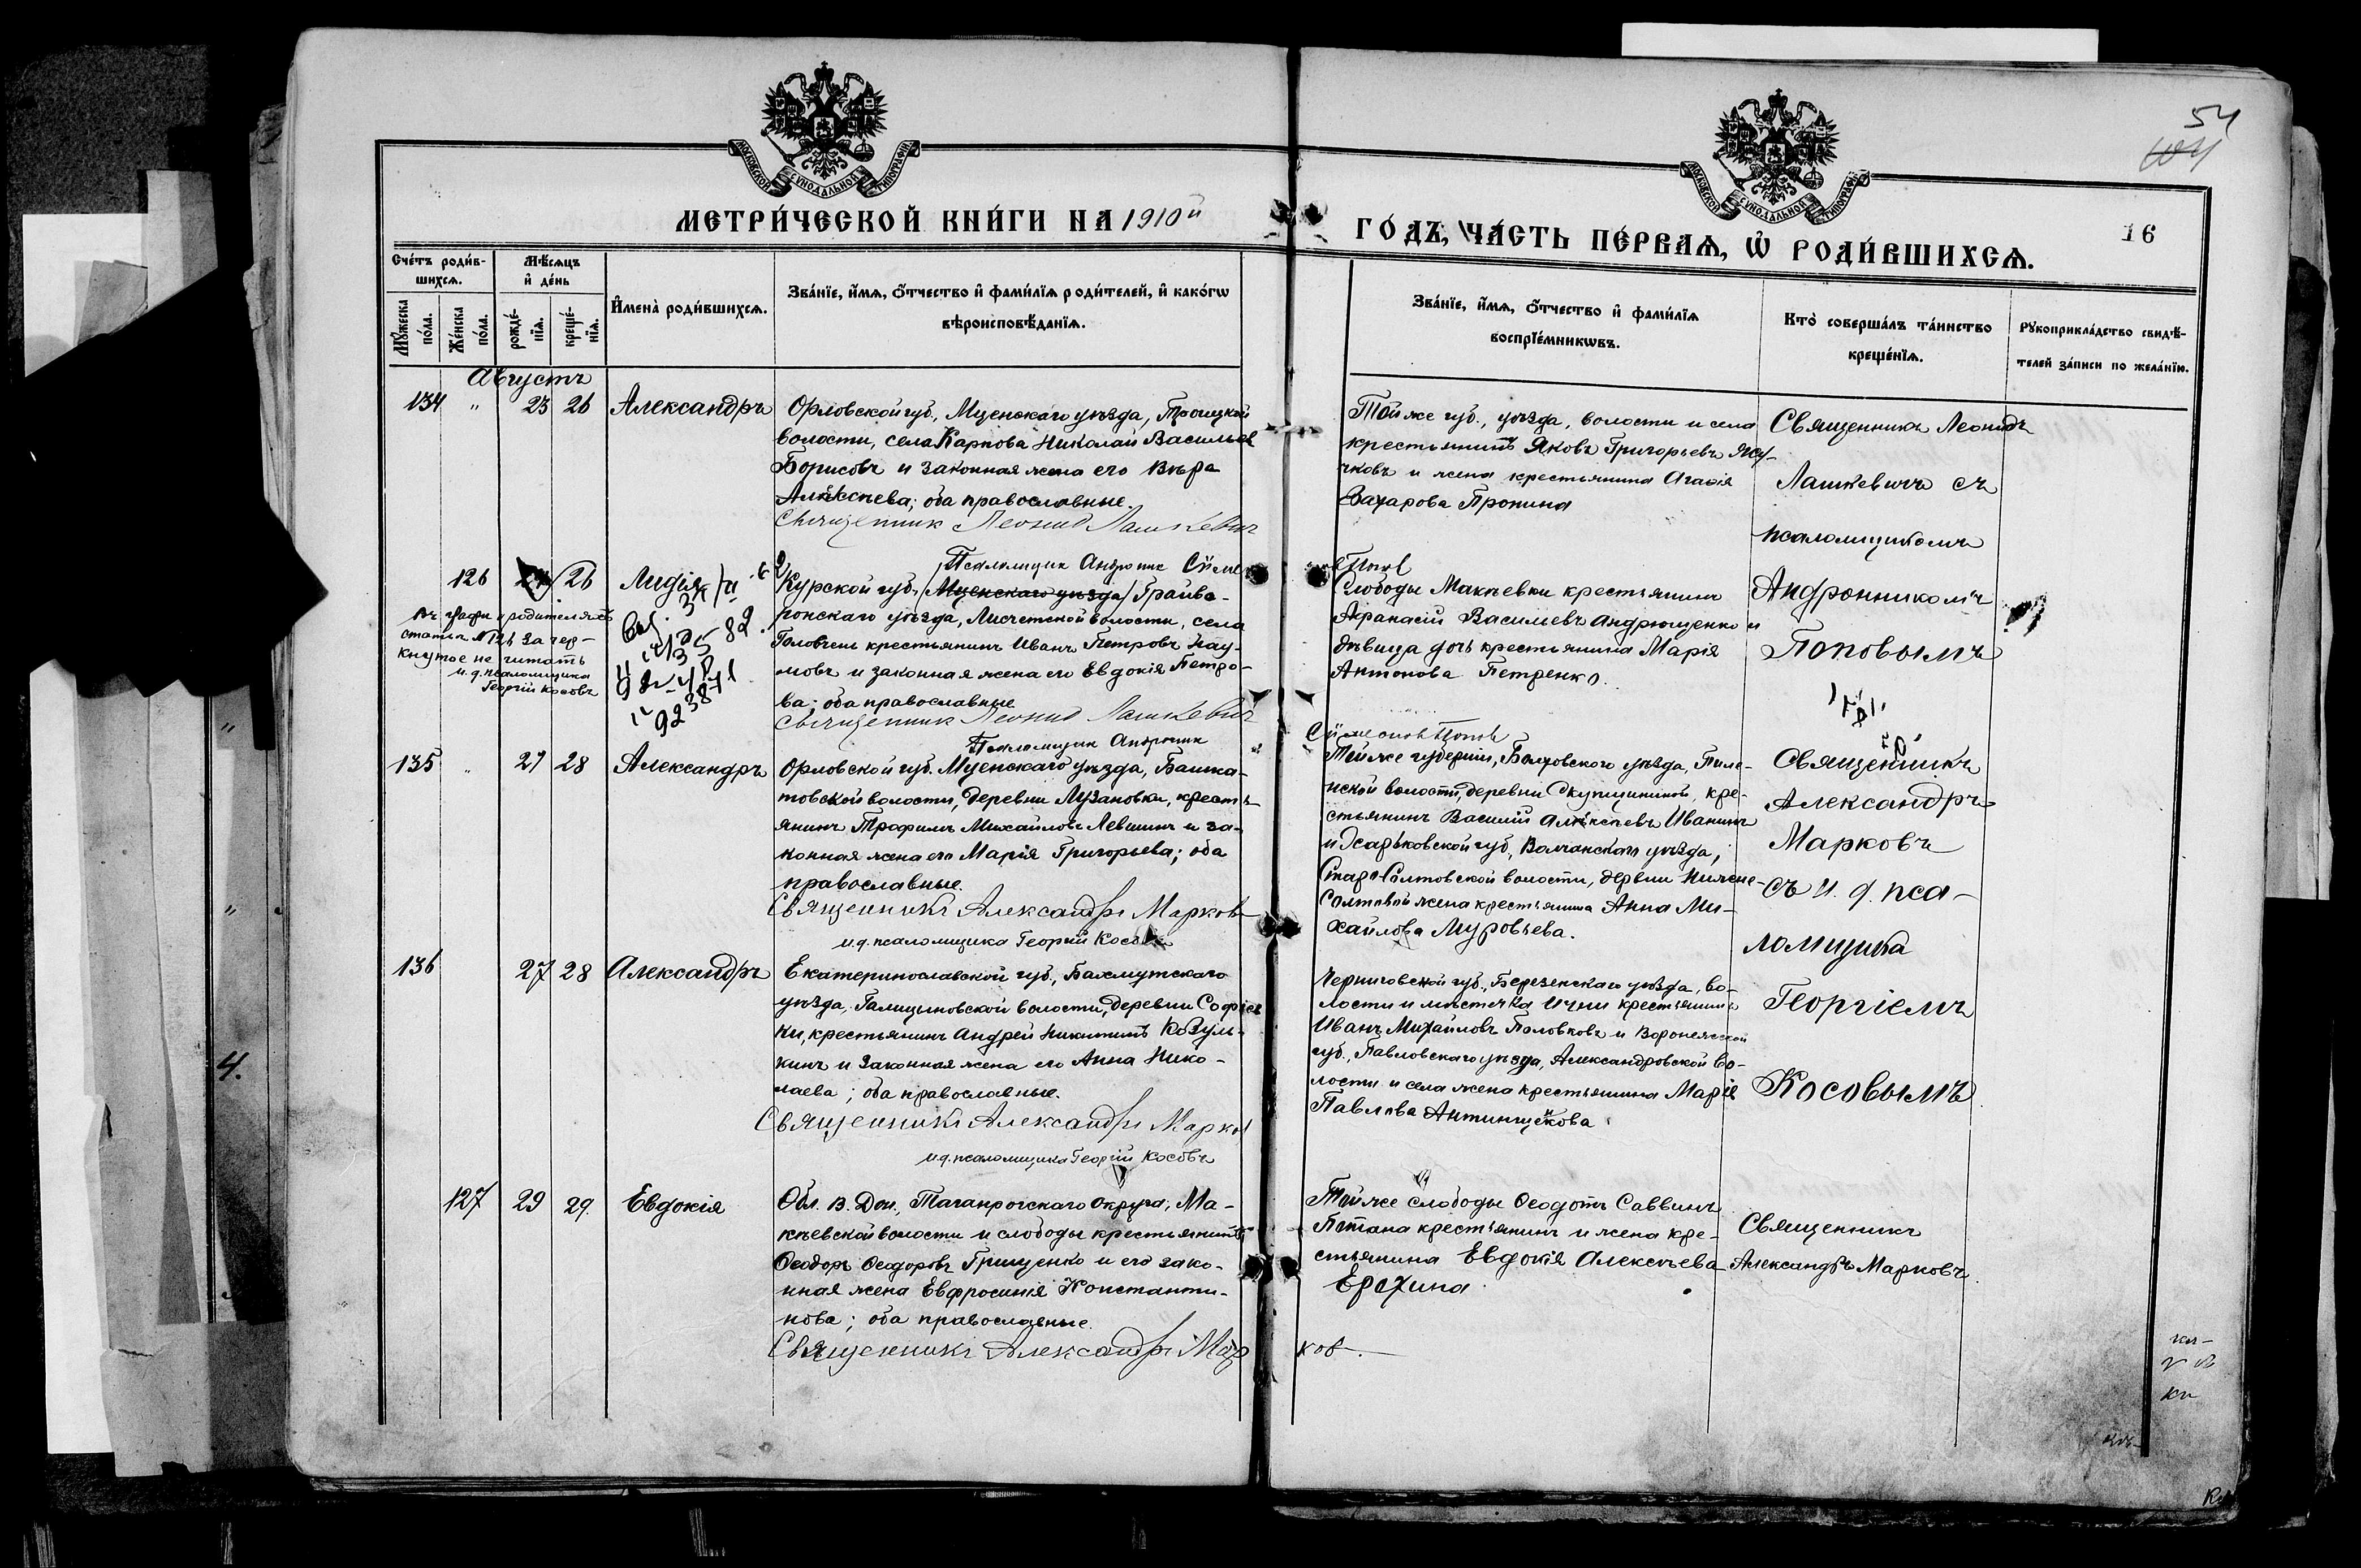 54
104
16
МОСКОВСКОЙ СУНОДАЛЬНОЙ ТИПОГРАФІИ
МОСКОВСКОЙ СУНОДАЛЬНОЙ ТИПОГРАФІИ
МЕТРИ́ЧЕСКОЙ КНИ́ГИ НА 1910й
ГО́ДЪ, ЧА́СТЬ ПЕ́РВАѦ, Ѡ҆ РОДИ́ВШИХСѦ.
Сче́тъ роди́в-
шихсѧ.
Мꙋ́жеска по́ла.
Же́нска по́ла.
Мѣ́сѧцъ
и҆ де́нь
рожде́-
нїѧ.
креще́-
нїѧ.
И҆мена̀ роди́вшихсѧ.
Зва́нїе, и҆́мѧ, ѻ҆́тчество и҆ фами́лїѧ роди́телей, и҆ како́гѡ
вѣроисповѣ́данїѧ.
Зва́нїе, и҆́мѧ, ѻ҆́тчество и҆ фами́лїѧ
воспрїе́мникѡвъ.
Кто̀ соверша́лъ та́инство
креще́нїѧ.
Рꙋкоприкла́дство свидѣ́-
телей за́писи по жела́нїю.
Августъ
134 " 23 26 Александръ
Орловской губ., Мценскаго уѣзда, Троицкой
волости, села Карпова Николай Васильев
Борисовъ и законная жена его Вѣра
Алексѣева; оба православные.
Священник Леонид Лашкевич
Псаломщик Андроник Сїме
Той же губ., уѣзда, волости и села
крестьянинъ Яковъ Григорьевъ Жу-
чковъ и жена крестьянина Агаѳія
Захарова Пронина
онъ Попов
Священникъ Леонидъ
Лашкевичъ съ
псаломщикомъ
Андронникомъ
Поповымъ
126 26 Лидія
Въ графѣ о родителяхъ
статьи №126 зачер-
кнутое не читать
и.д. псаломщика
Георгій Косовъ
Курской губ. Мценскаго уѣзда Грайво-
ронскаго уѣзда, Лисичетской волости, села
Головчень крестьянинъ Иванъ Петровъ Нау-
мовъ и законная жена его Евдокія Петро-
ва; оба православные
Священник Леонид Лашкевич
Псаломщик Андроник
Слободы Макѣевки крестьянинъ
Аѳанасій Васильевъ Андрющенко и
дѣвица дочь крестьянина Марія
Антонова Петренко.
Сїмеонов Попов
135 " 27 28 Александръ
Орловской губ. Мценскаго уѣзда, Башка-
товской волости, деревни Музановки, кресть-
янинъ Трофимъ Михайловъ Левшинъ и за-
конная жена его Марія Григорьева; оба
православные.
Священникъ Александръ Марков
и.д. псаломщика Георгій Косовъ
Той же губерніи, Болховского уѣзда,
нской волости, деревни кре-
стьянинъ Василій Алексѣевъ Иванинъ
и Харьковской губ., Волчанскаго уѣзда,
Старо-Салтовской волости, дервни Нижне-
Салтовой жена крестьянина Анна Ми-
хайлова Муровьева.
Священникъ
Александръ
Марковъ
съ и. д. пса-
ломщика
Георгіемъ
Косовымъ
136 27 28 Александръ
Екатеринославской губ., Бахмутскаго
уѣзда, Галицыновской волости, деревни Софіев
ки, крестьянинъ Андрей Никитинъ Козуль-
кинъ и законная жена его Анна Нико-
лаева; оба православные.
Священникъ Александръ Марков
и.д. псаломщика Георгій Косовъ
Черниговской губ., Березенскаго уѣзда, во-
лости и мѣстечка Ични крестьянинъ
Иванъ Михайловъ Половковъ и Воронежской
губ., Павловскаго уѣзда, Александровской во-
лости и села жена крестьянина Марія
Павлова Антинщекова
127 29 29. Евдокія
Обл. В. Дон., Таганрогскаго округа, Ма-
кѣевской волости и слободы крестьянинъ
Ѳеодоръ Ѳеодоровъ Грищенко и его зако-
нная жена Евфросинія Константи-
нова; оба православные.
Священникъ Александръ Мар
ков.
Той же слободы Ѳеодотъ Саввинъ
крестьянинъ и жена кре-
стьянина Евдокія Алексѣева
Ерохина
Священникъ
Александръ Марковъ.
4.